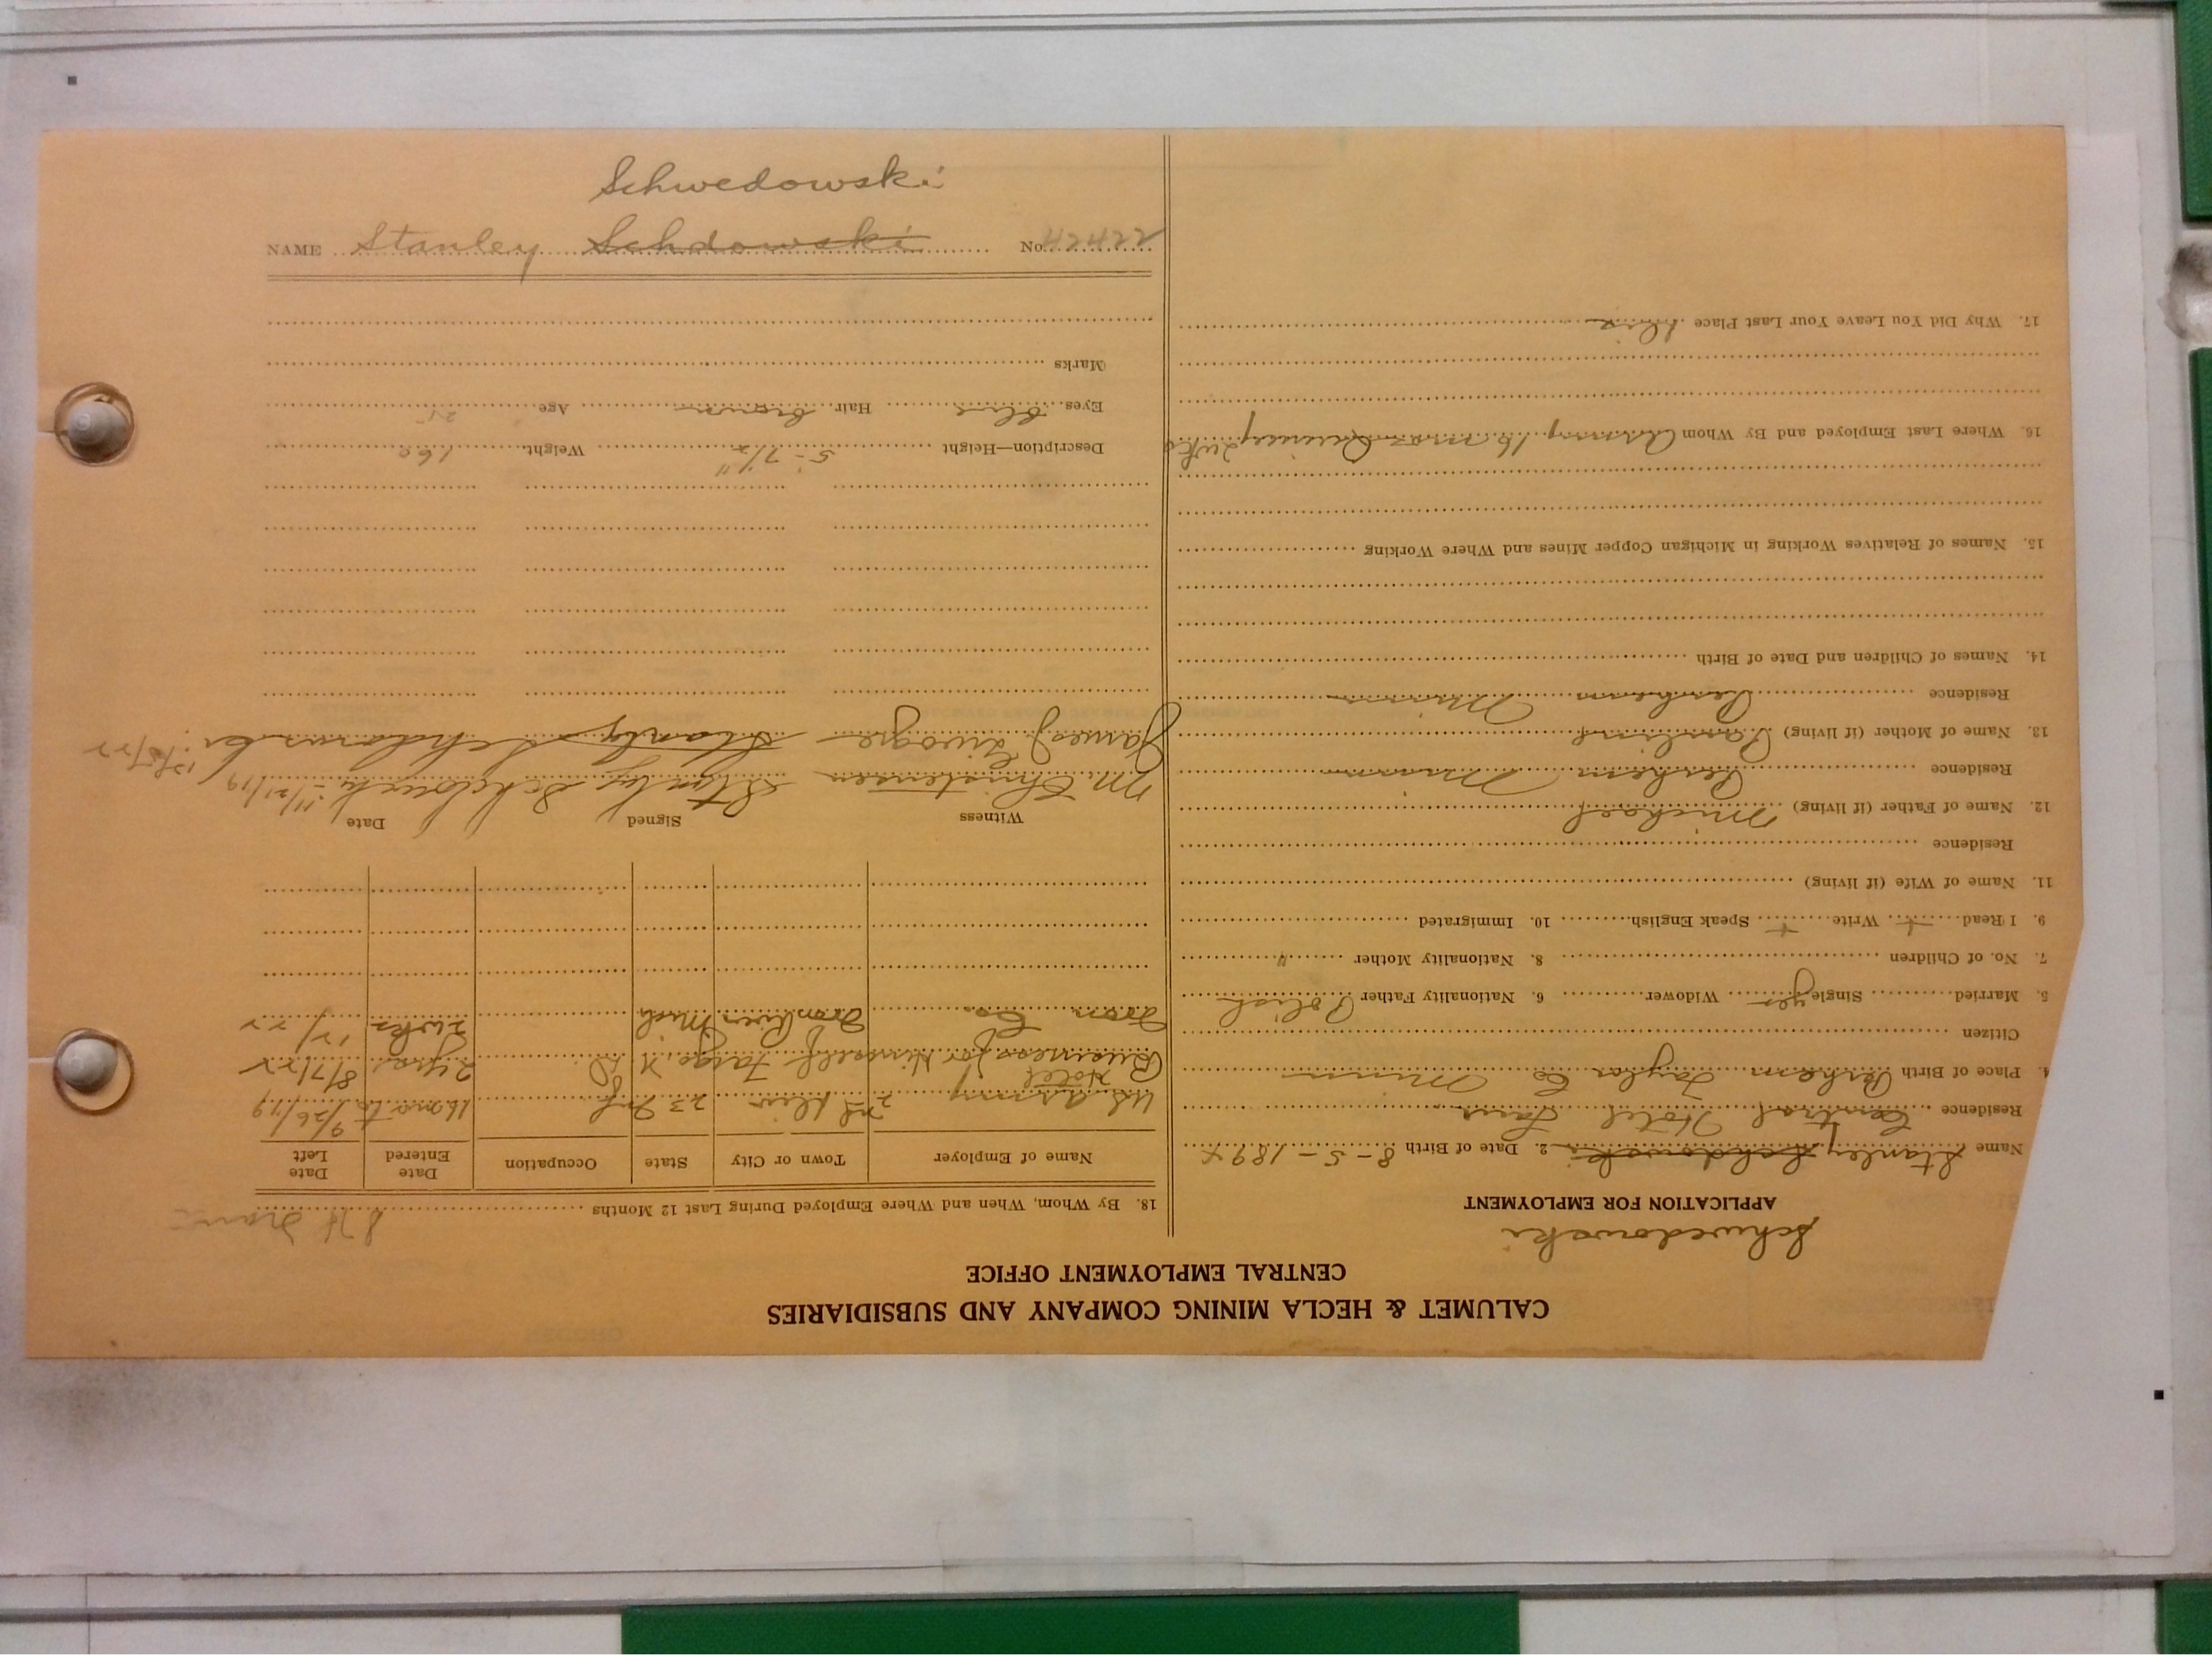 CALUMET & HECLA MINING COMPANY AND SUBSIDIARIES
CENTRAL EMPLOYMENT OFFICE
Schwedowski
APPLICATION FOR EMPLOYMENT
Name Stanley Schdowski 2. Date of Birth 8-5-1894
Residence Central Hotel
4. Place of Birth Perham Taylor Co Minn
Citizen
5. Married Single yes Widower 6. Nationality Father Polish
7. No. of Children 8. Nationality Mother "
9. I Read + Write + Speak English 10. Immigrated
11. Name of Wife (if living)
Residence
12. Name of Father (if living) Michael
Residence Perham Minn
13. Name of Mother (if living) Pauline
Residence Perham Minn
14. Names of Children and Date of Birth
15. Names of Relatives Working in Michigan Copper Mines and Where Working
16. Where Last Employed and By Whom Army 16 mos Quincy 2 wks
17. Why Did You Leave Your Last Place
18. By Whom, When and Where Employed During Last 12 Months
Name of Employer Town or City State Occupation Date Entered Date Left
U.S. Army 2nd 23 Inf 16 mo to 9/26/19
Hotel
Business for Himself Fargo N D 2 yrs 8/7/22
Iron Co. Iron River Mich 2 wks
Witness Signed Date
M. Christensen Stanly 11/21/19
James J Stanly Schdowski
Description—Height 5-7 1/2" Weight 160
Eyes Blue Hair brown Age 25
Marks
NAME Stanley Schdowski No. 42422
Schwedowski